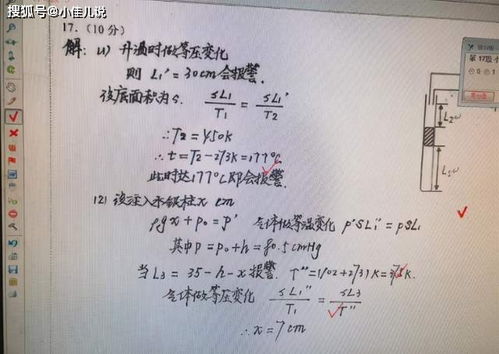 搜狐号@小佳儿说
17. (10分)
解: (1) 升温时做等压变化
则 L₁' = 30cm 会报警.
设底面积为S. SL₁/T₁ = SL₁'/T₂
∴T₂ = 450K
∴t = T₂-273K = 177℃
此时达177℃即会报警.
(2) 设注入水银柱x cm
ρgx + p₀ = p' 气体做等温变化 p'SL₁'' = pSL₁
其中P = P₀+h = 80.5cmHg
当 L₃ = 35-h-x 报警. T'' = (102+273)K = 375K.
气体做等压变化 SL₁''/T₁ = SL₃/T''
∴x = 7cm
L₂
L₁